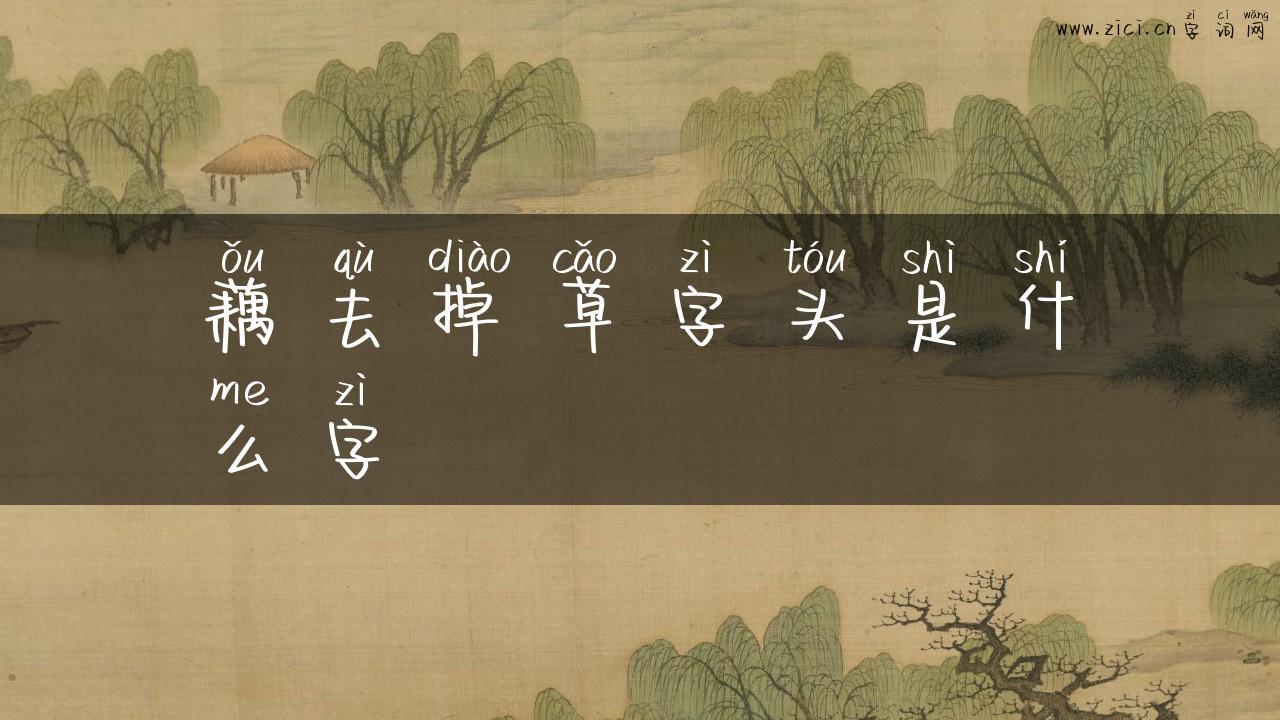 zì cí wǎng
www.zici.cn 字 词 网
ǒu qù diào cǎo zì tóu shì shí
藕 去 掉 草 字 头 是 什
me zì
么 字